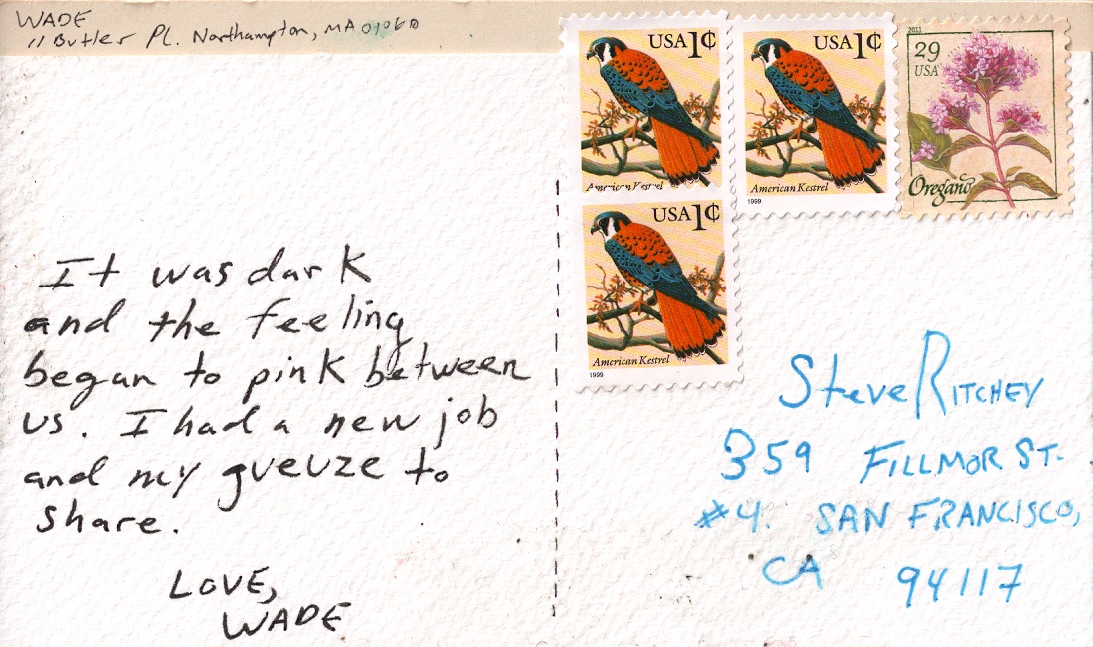 WADE
11 Butler Pl. Northampton, MA 01060
USA 1¢
American Kestrel
USA 1¢
American Kestrel
1999
2011
29
USA
Oregano
USA 1¢
American Kestrel
1999
It was dark
and the feeling
began to pink between
us. I had a new job
and my gueuze to
share.
LOVE,
WADE
Steve RITCHEY
359 FILLMOR ST.
#4. SAN FRANCISCO,
CA 94117